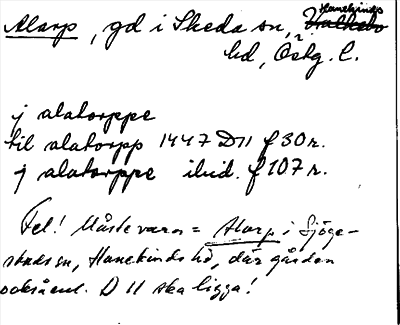 Alarp, gd i Skeda sn, Hanekinds Valkebo
hd, Östg. l.
j alatorppe
til alatorpp 1447 D11 f 30 r.
j alatorppe ibid. f 107 r.
Fel! Måste vara = Alarp i Sjöge-
stads sn, Hanekinds hd, där gården
också enl. D 11 ska ligga!